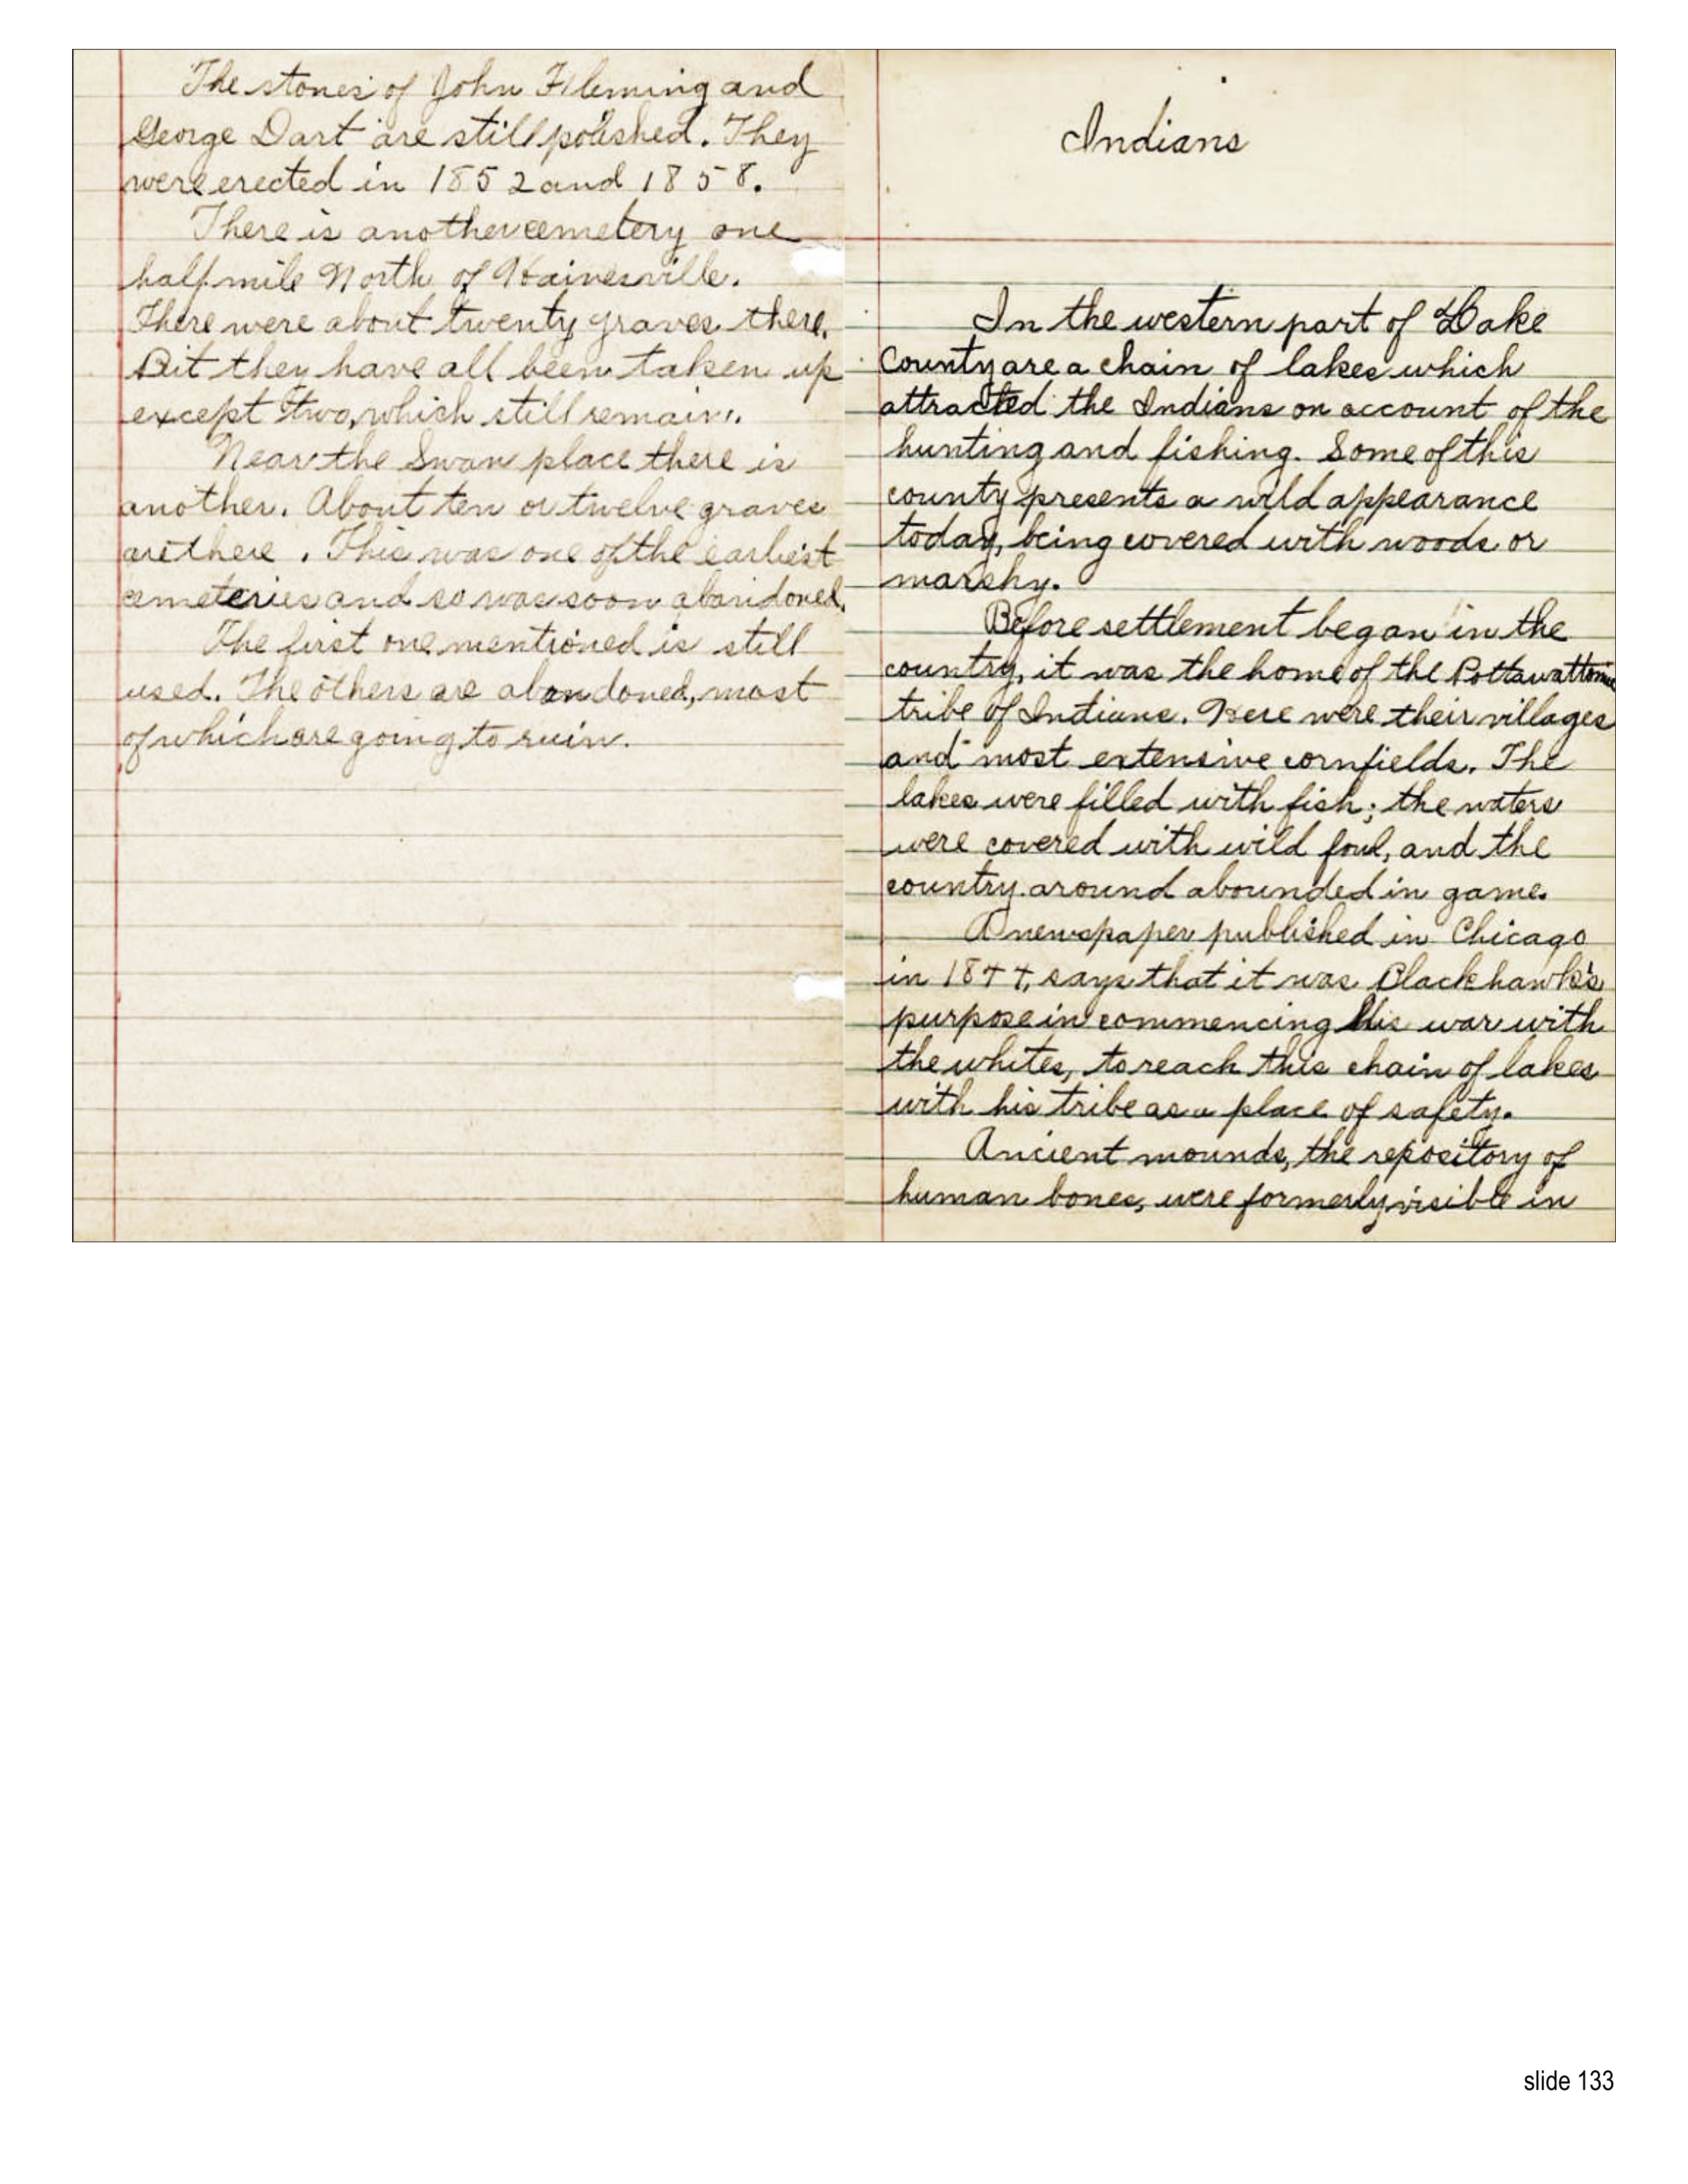 The stones of John Fleming and
George Dart are still polished. They
were erected in 1852 and 1858.
There is another cemetery one
half mile North of Hainesville.
There were about twenty graves there.
But they have all been taken up
except two, which still remain.
Near the Swan place there is
another. About ten or twelve graves
are there. This was one of the earliest
cemeteries and so was soon abandoned.
The first one mentioned is still
used. The others are abandoned, most
of which are going to ruin.
Indians
In the western part of Lake
County are a chain of lakes which
attracted the Indians on account of the
hunting and fishing. Some of this
county presents a wild appearance
today, being covered with woods or
marshy.
Before settlement began in the
country, it was the home of the Pottawattomie
tribe of Indians. Here were their villages
and most extensive cornfields. The
lakes were filled with fish; the waters
were covered with wild fowl, and the
country around abounded in game.
A newspaper published in Chicago
in 1844, says that it was Blackhawk's
purpose in commencing his war with
the whites, to reach this chain of lakes
with his tribe as a place of safety.
Ancient mounds, the repository of
human bones, were formerly visible in
slide 133